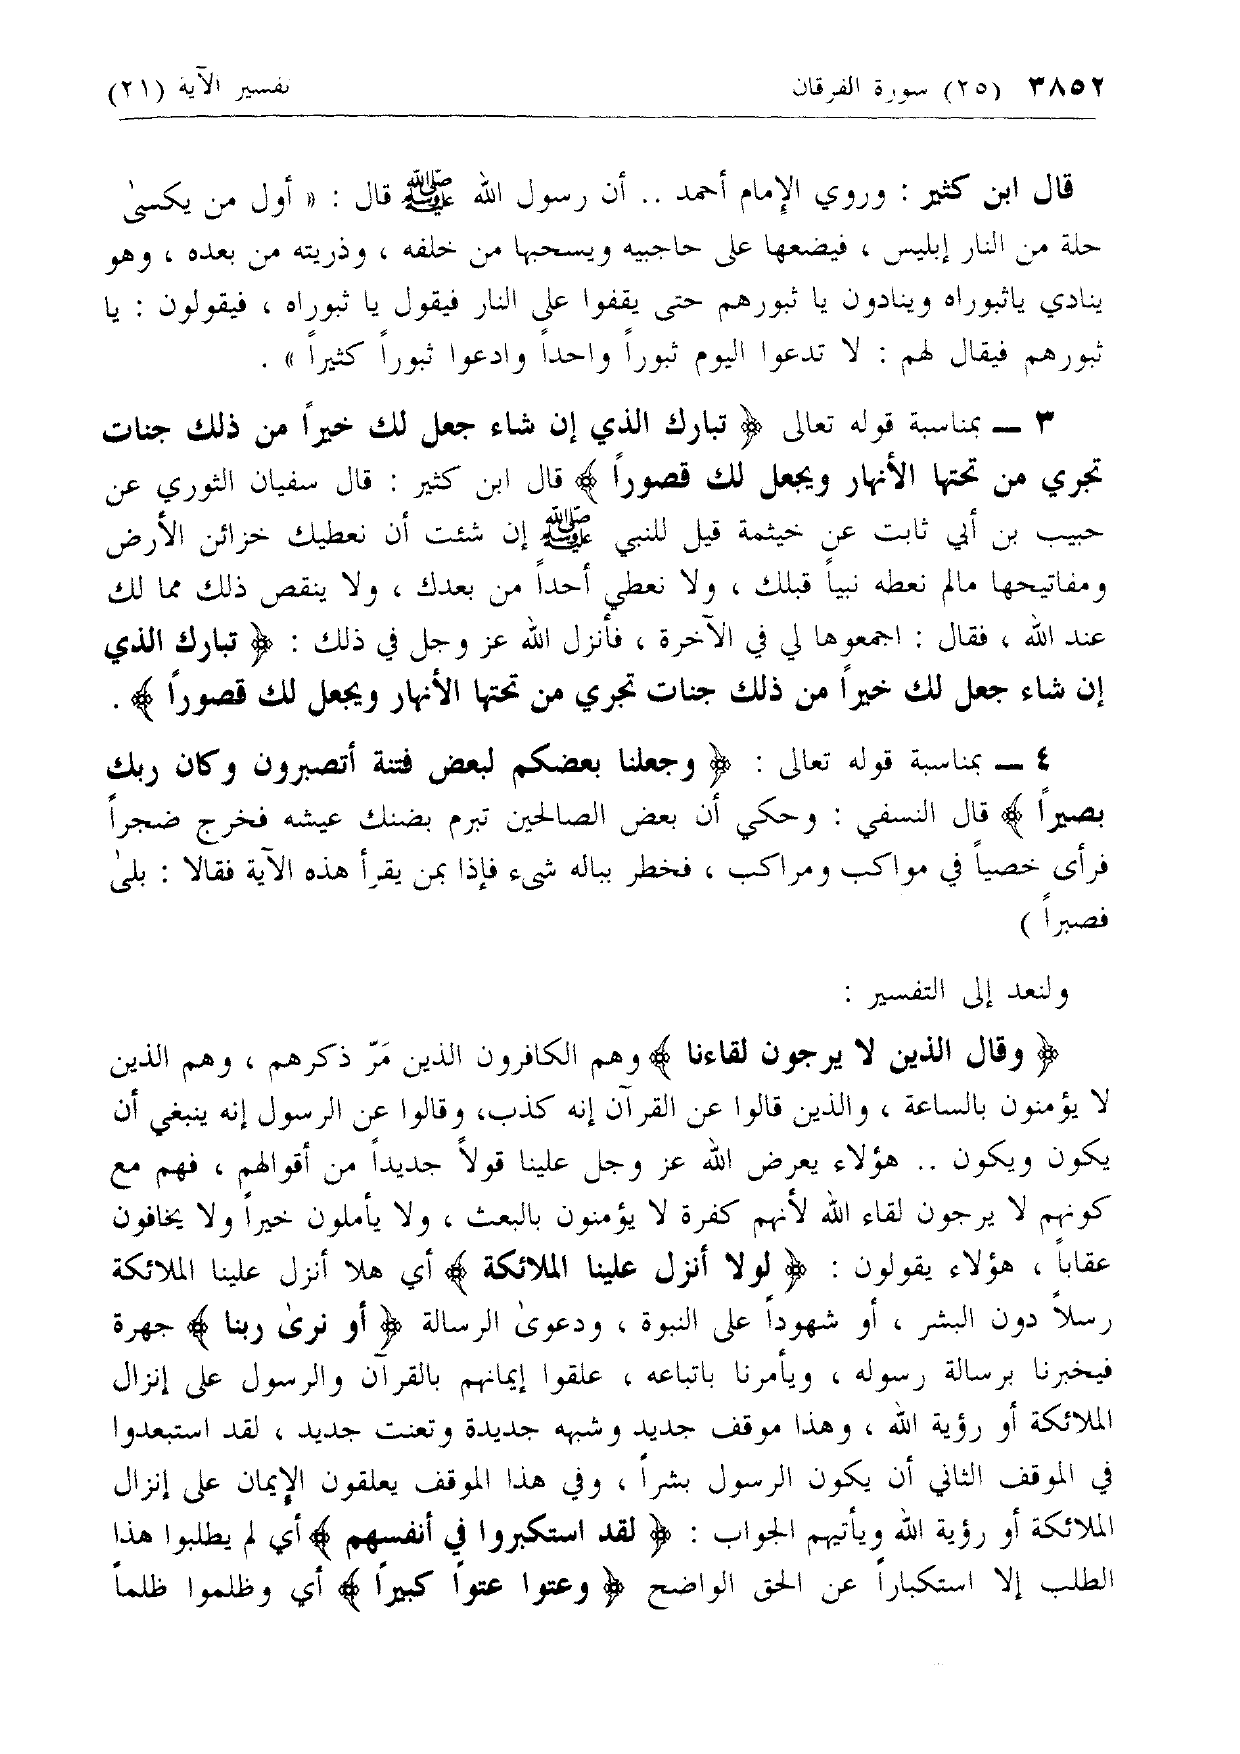 ٣٨٥٢ (٢٥) سورة الفرقان تفسير الآية (٢١)
قال ابن كثير : وروي الإمام أحمد .. أن رسول الله ﷺ قال : « أول من يكسىٰ
حلة من النار إبليس ، فيضعها على حاجبيه ويسحبها من خلفه ، وذريته من بعده ، وهو
ينادي ياثبوراه وينادون يا ثبورهم حتى يقفوا على النار فيقول يا ثبوراه ، فيقولون : يا
ثبورهم فيقال لهم : لا تدعوا اليوم ثبوراً واحداً وادعوا ثبوراً كثيراً » .
٣ ـ بمناسبة قوله تعالى ﴿ تبارك الذي إن شاء جعل لك خيراً من ذلك جنات
تجري من تحتها الأنهار ويجعل لك قصوراً ﴾ قال ابن كثير : قال سفيان الثوري عن
حبيب بن أبي ثابت عن خيثمة قيل للنبي ﷺ إن شئت أن نعطيك خزائن الأرض
ومفاتيحها مالم نعطه نبياً قبلك ، ولا نعطي أحداً من بعدك ، ولا ينقص ذلك مما لك
عند الله ، فقال : اجمعوها لي في الآخرة ، فأنزل الله عز وجل في ذلك : ﴿ تبارك الذي
إن شاء جعل لك خيراً من ذلك جنات تجري من تحتها الأنهار ويجعل لك قصوراً ﴾ .
٤ ـ بمناسبة قوله تعالى : ﴿ وجعلنا بعضكم لبعض فتنة أتصبرون وكان ربك
بصيراً ﴾ قال النسفي : وحكي أن بعض الصالحين تبرم بضنك عيشه فخرج ضجراً
فرأى خصياً في مواكب ومراكب ، فخطر بباله شىء فإذا بمن يقرأ هذه الآية فقالا : بلىٰ
فصبراً )
ولنعد إلى التفسير :
﴿ وقال الذين لا يرجون لقاءنا ﴾ وهم الكافرون الذين مَرّ ذكرهم ، وهم الذين
لا يؤمنون بالساعة ، والذين قالوا عن القرآن إنه كذب، وقالوا عن الرسول إنه ينبغي أن
يكون ويكون .. هؤلاء يعرض الله عز وجل علينا قولاً جديداً من أقوالهم ، فهم مع
كونهم لا يرجون لقاء الله لأنهم كفرة لا يؤمنون بالبعث ، ولا يأملون خيراً ولا يخافون
عقاباً ، هؤلاء يقولون : ﴿ لولا أنزل علينا الملائكة ﴾ أي هلا أنزل علينا الملائكة
رسلاً دون البشر ، أو شهوداً على النبوة ، ودعوىٰ الرسالة ﴿ أو نرىٰ ربنا ﴾ جهرة
فيخبرنا برسالة رسوله ، ويأمرنا باتباعه ، علقوا إيمانهم بالقرآن والرسول على إنزال
الملائكة أو رؤية الله ، وهذا موقف جديد وشبهه جديدة وتعنت جديد ، لقد استبعدوا
في الموقف الثاني أن يكون الرسول بشراً ، وفي هذا الموقف يعلقون الإيمان على إنزال
الملائكة أو رؤية الله ويأتيهم الجواب : ﴿ لقد استكبروا في أنفسهم ﴾ أي لم يطلبوا هذا
الطلب إلا استكباراً عن الحق الواضح ﴿ وعتوا عتواً كبيراً ﴾ أي وظلموا ظلماً